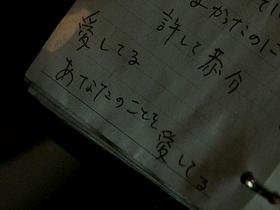 てい
よかたのに
許して恭介
愛してる
あなたのことを愛してる